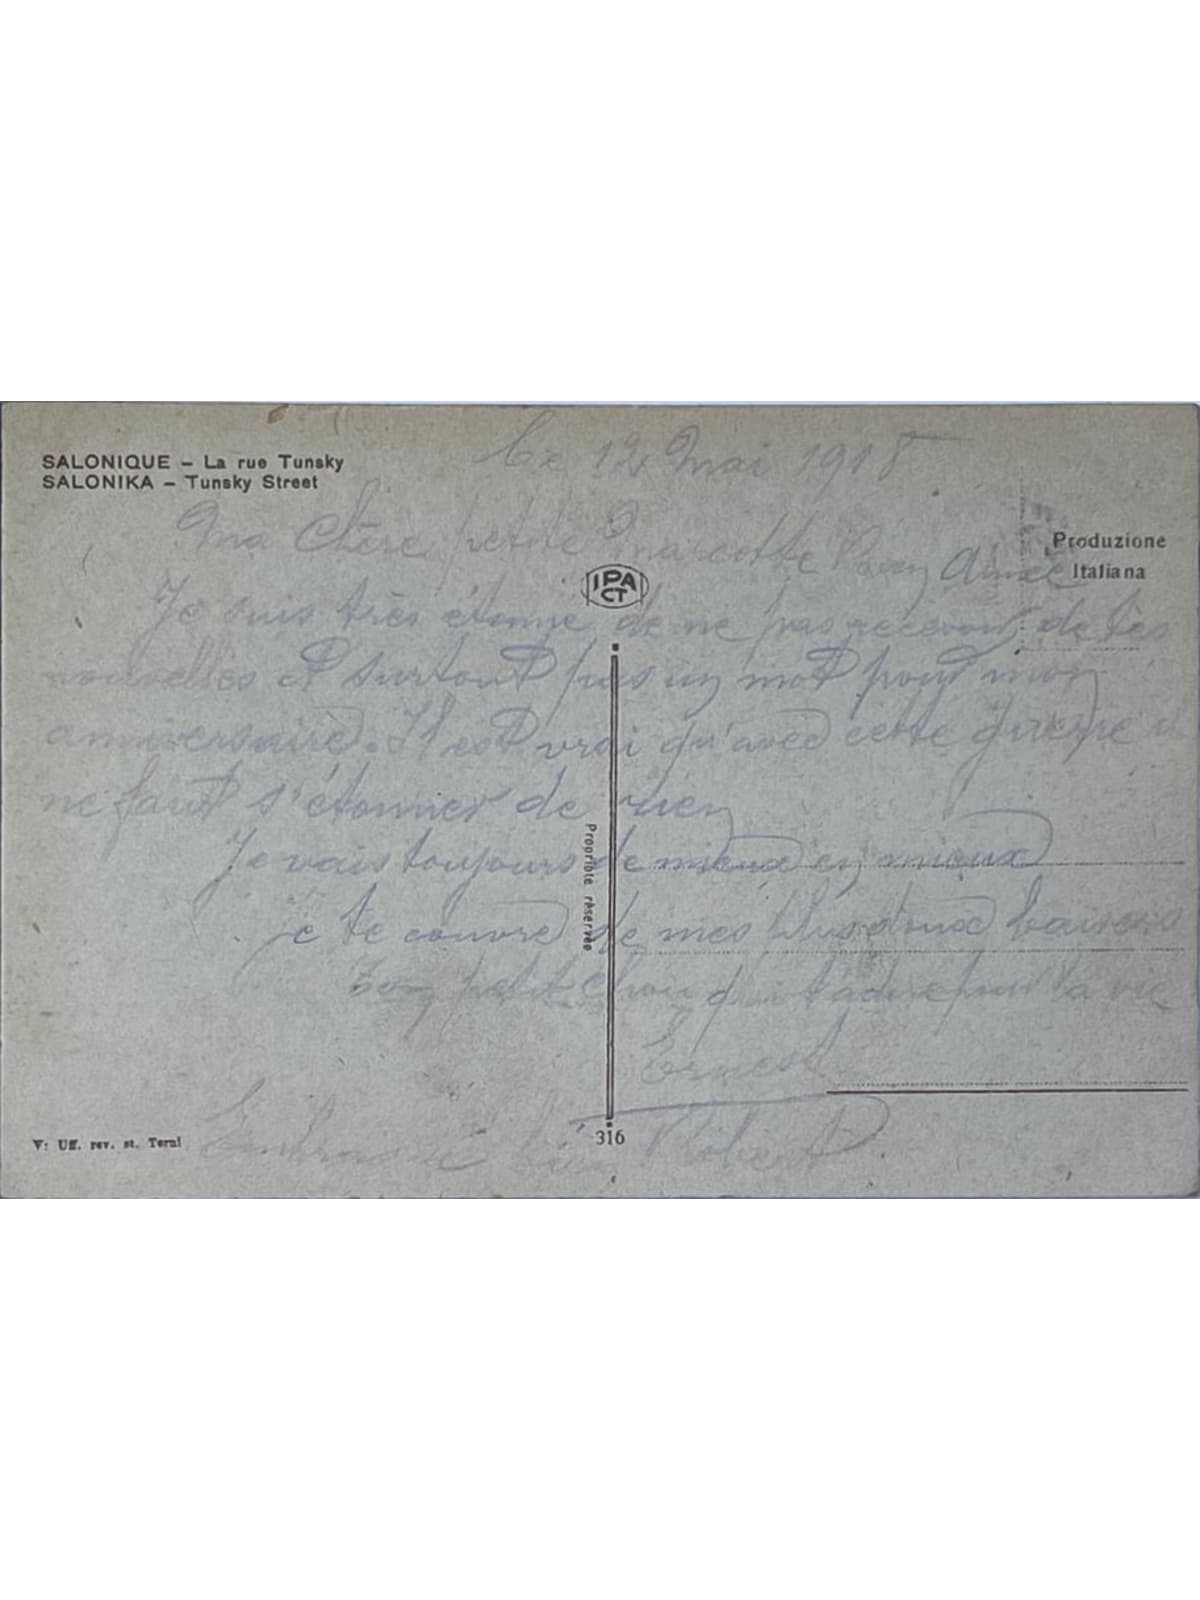 SALONIQUE – La rue Tunsky
SALONIKA – Tunsky Street
Ce 12 Mai 1918
Produzione
Italiana
Ma Chère petite Marcotte bien Aimée
IPA
CT
Je suis très étonné de ne pas recevoir de tes
nouvelles et surtout pas un mot pour mon
anniversaire. Il est vrai qu'avec cette guerre il
ne faut s'étonner de rien
Je vais toujours de mieux en mieux
je te couvre de mes plus doux baisers
Ton petit Chou qui t'adore pour la vie
Ernest
Embrasse bien Robert
Propriété réservée
V: Uff. rev. st. Terni
316